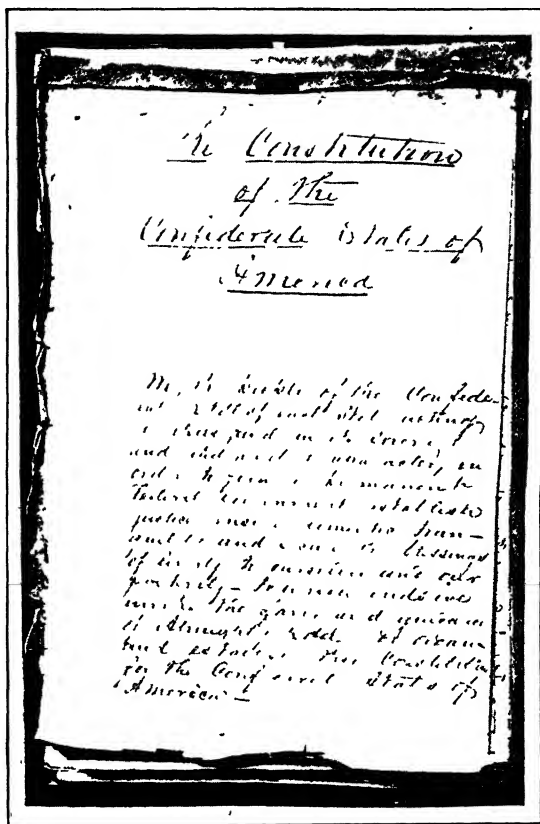 The Constitution
of the
Confederate States of
America
of the Confede-
each State acting
in its sovereign
and independent character, in
order to form a permanent
Federal Government establish
justice insure domestic tran-
and secure the blessings
of liberty to ourselves and our
posterity - 
the favor and guidance
of Almighty God do ordain
and establish this Constitution
for the Confederate States of
America -